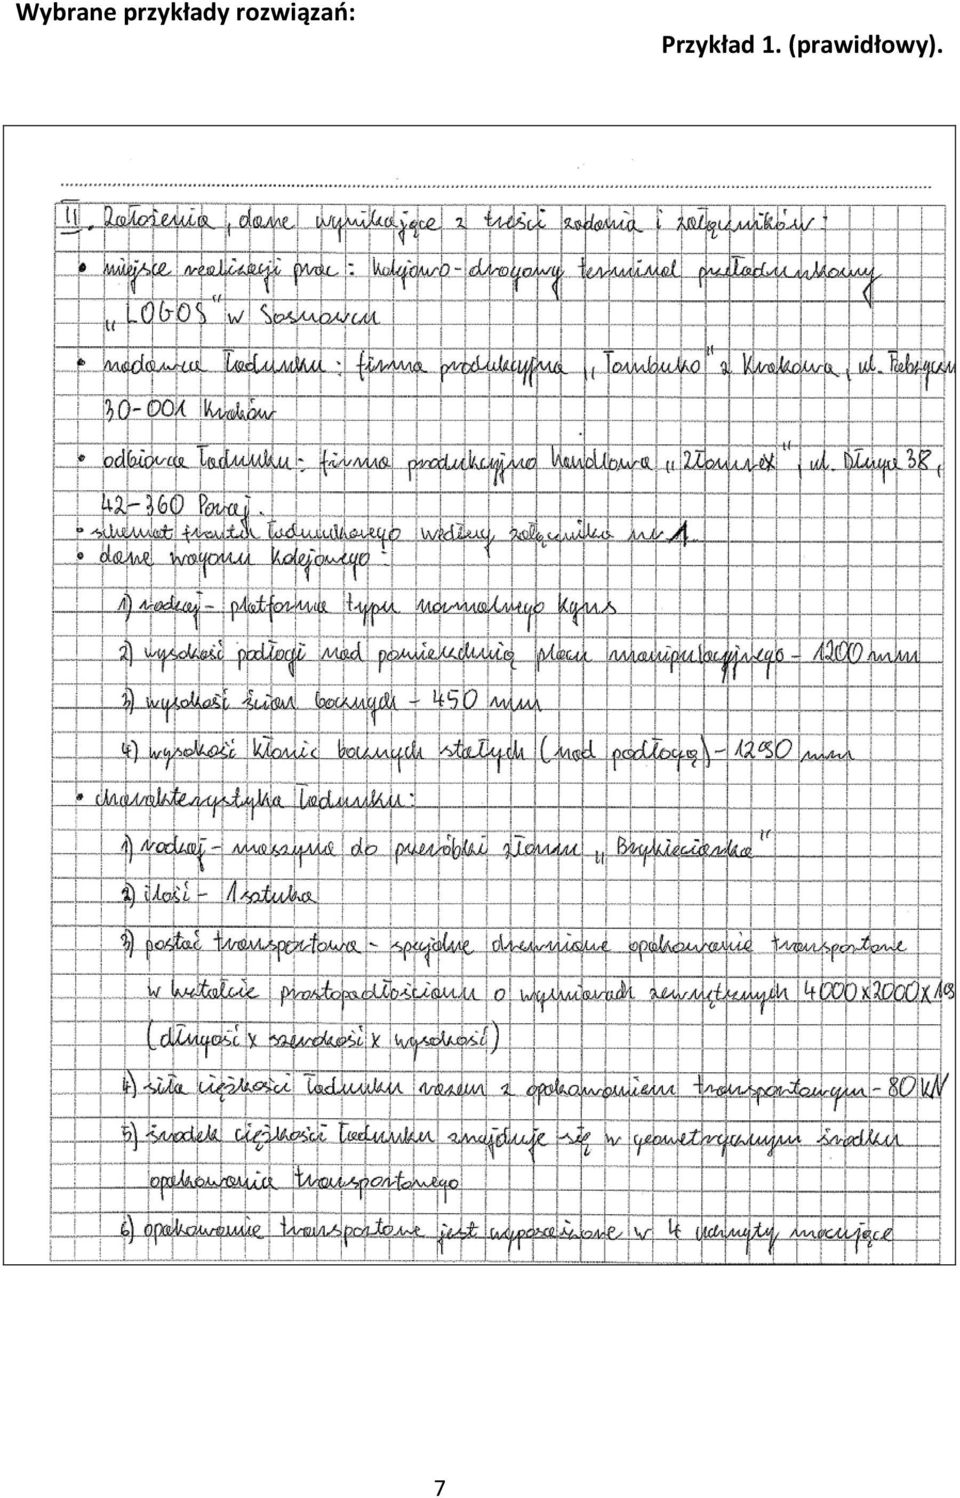 Wybrane przykłady rozwiązań:
Przykład 1. (prawidłowy).
II. Założenia, dane wynikające z treści zadania i załączników:
• miejsce realizacji prac: kolejowo-drogowy terminal przeładunkowy
„LOGOS" w Sosnowcu
• nadawca ładunku: firma produkcyjna „Tombuko" z Krakowa, ul.
30-001 Kraków
• odbiorca ładunku: firma produkcyjno handlowa „Złomrex", ul. Długa 38,
42-360 Poraj.
• schemat frontu ładunkowego według załącznika nr 1
• dane wagonu kolejowego:
1) rodzaj - platforma typu normalnego Kgns
2) wysokość podłogi nad powierzchnią placu manipulacyjnego - 1200 mm
3) wysokość ścian bocznych - 450 mm
4) wysokość kłonic bocznych stałych (nad podłogą) - 1290 mm
• charakterystyka ładunku:
1) rodzaj - maszyna do przeróbki złomu „Brykieciarka"
2) ilość - 1 sztuka
3) postać transportowa - specjalne drewniane opakowanie transportowe
w kształcie prostopadłościanu o wymiarach zewnętrznych 4000x2000x
(długość x szerokość x wysokość)
4) siła ciężkości ładunku razem z opakowaniem transportowym - 80 kN
5) środek ciężkości ładunku znajduje się w geometrycznym środku
opakowania transportowego
6) opakowanie transportowe jest wyposażone w 4 uchwyty mocujące
7